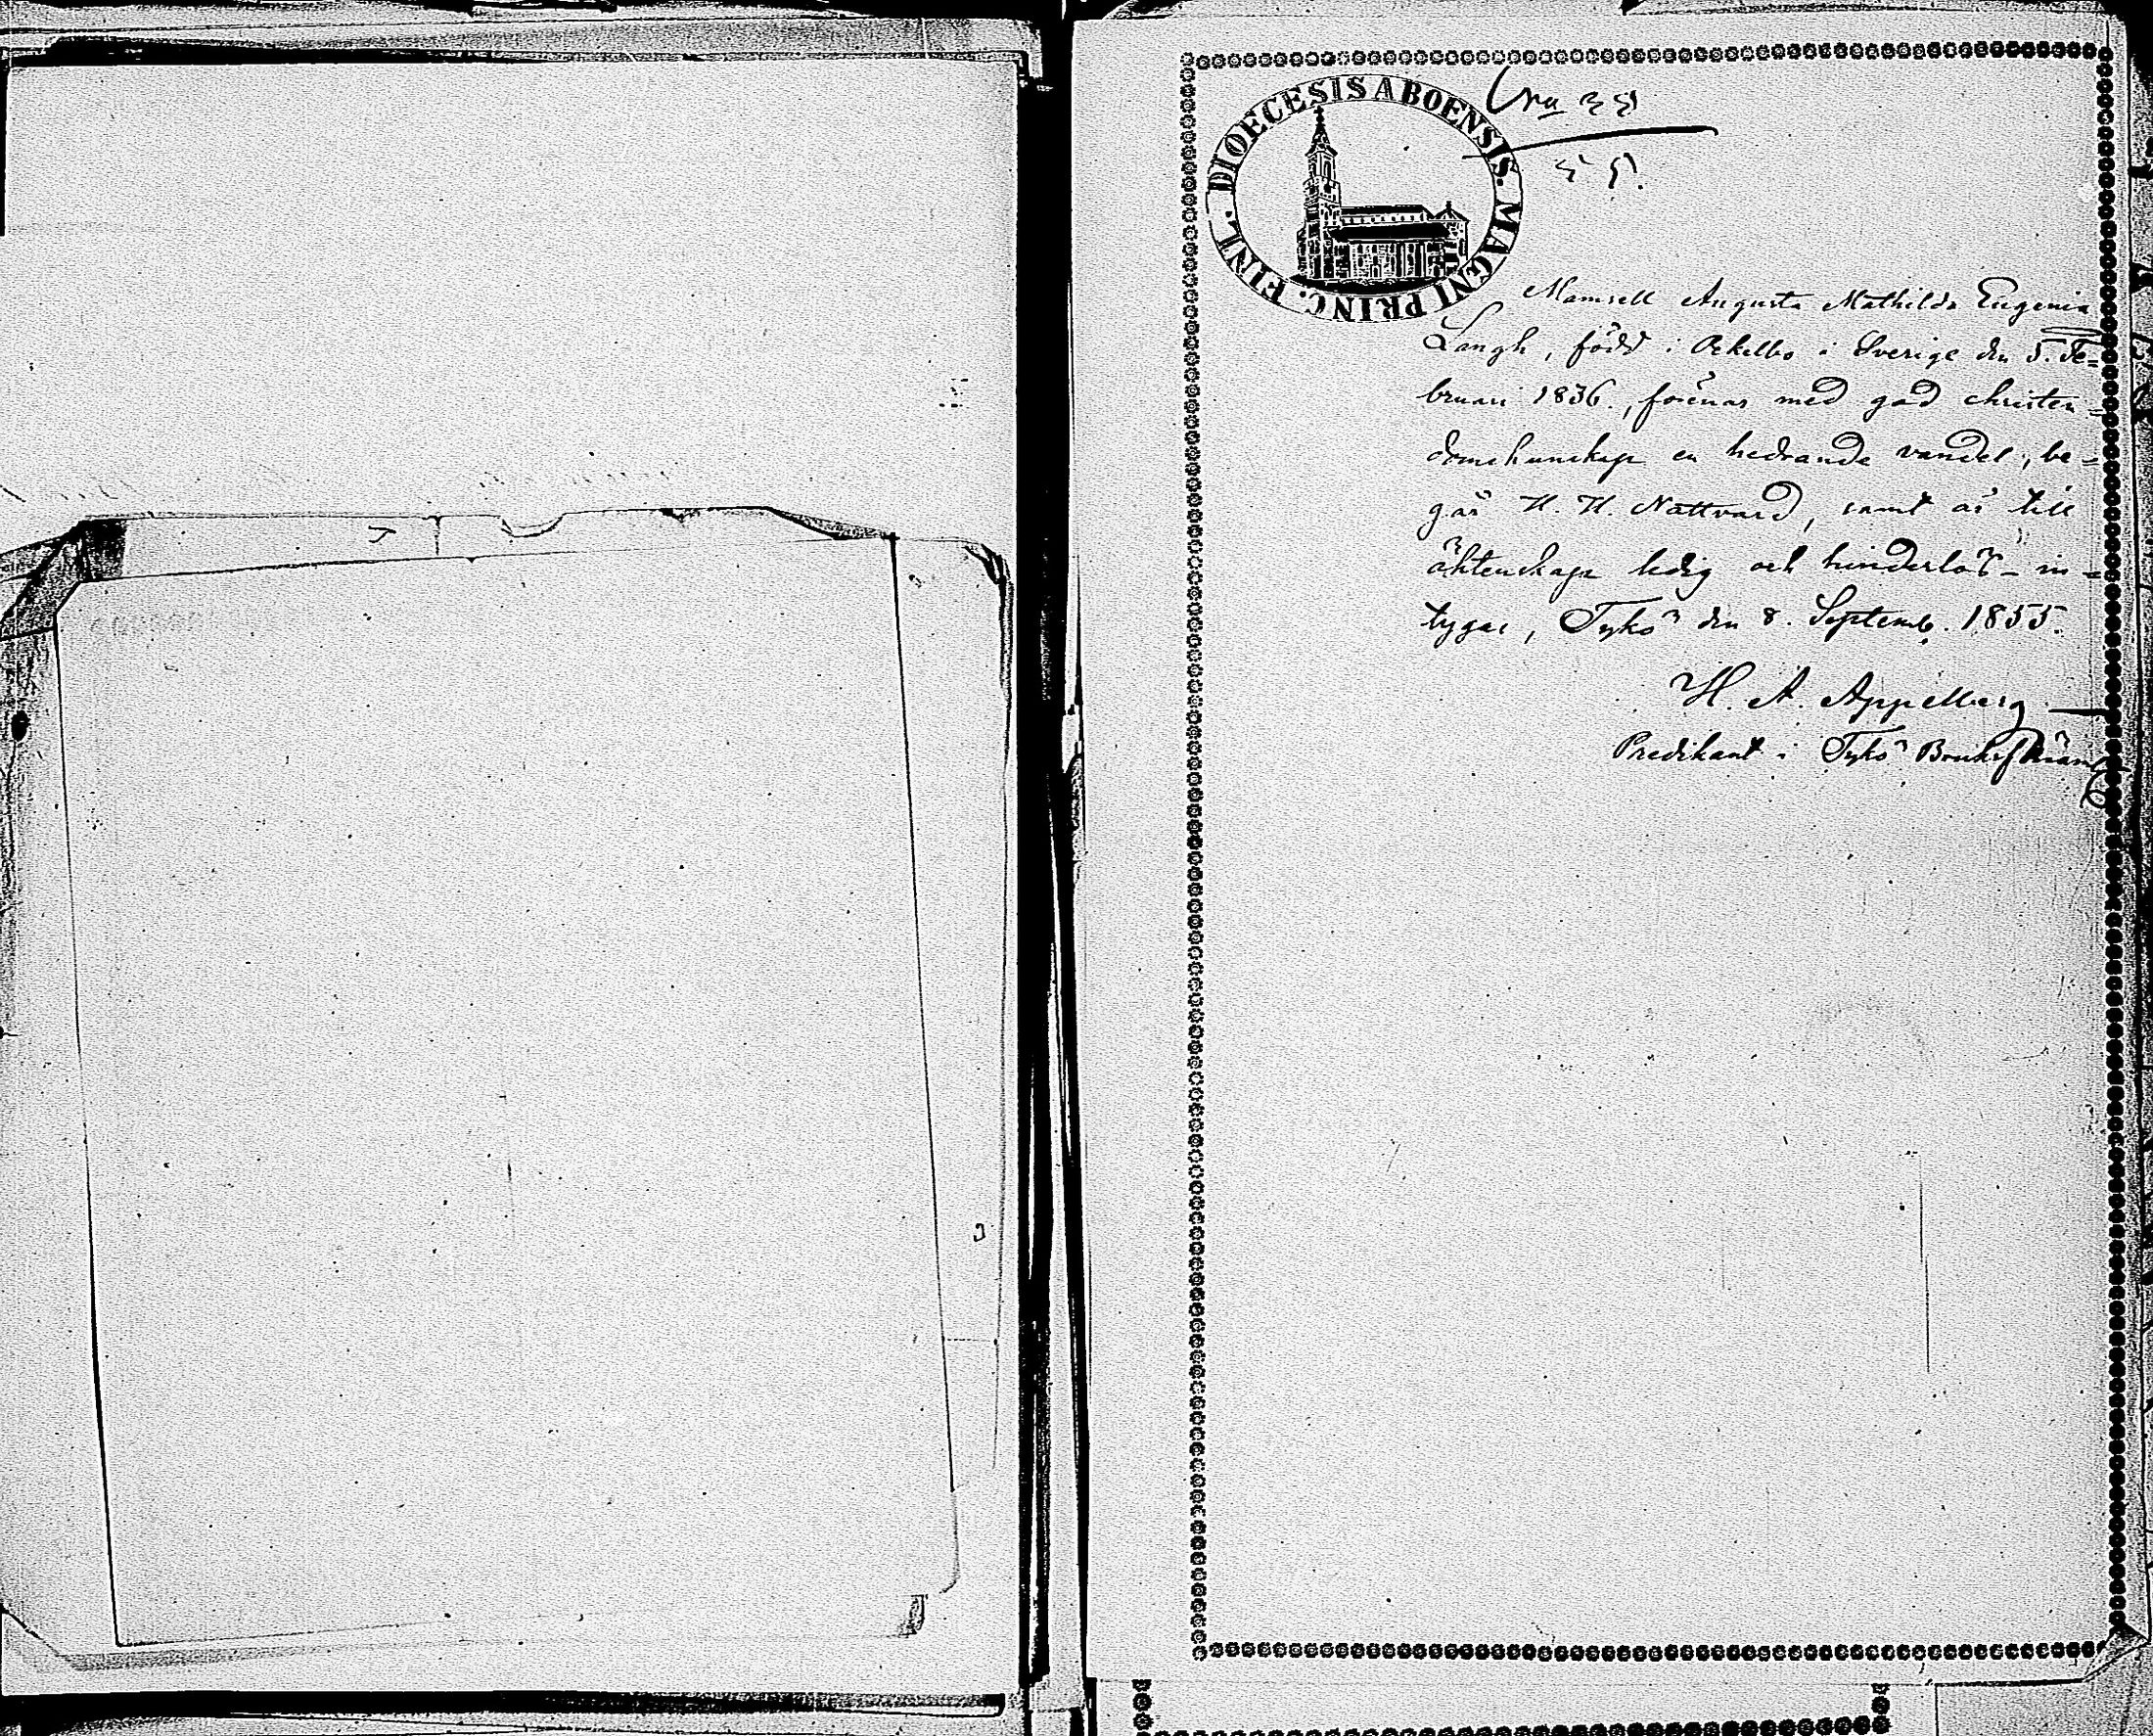 DIOECESIS ABOENSIS. MAGNI PRINC. FINL.
Mamsell Augusta Mathilda Eugenia
Langh, född i Ockelbo i Sverige den 5. Fe-
bruari 1836., förenar med god christen-
domskunskap en hedrande vandel, be-
går H. H. Nattvard, samt är till
äktenskap ledig och hinderlös - in-
tygar, Tykö den 8. Septemb. 1855.
H. A. Appelberg
Predikant i Tykö Bruksförsaml